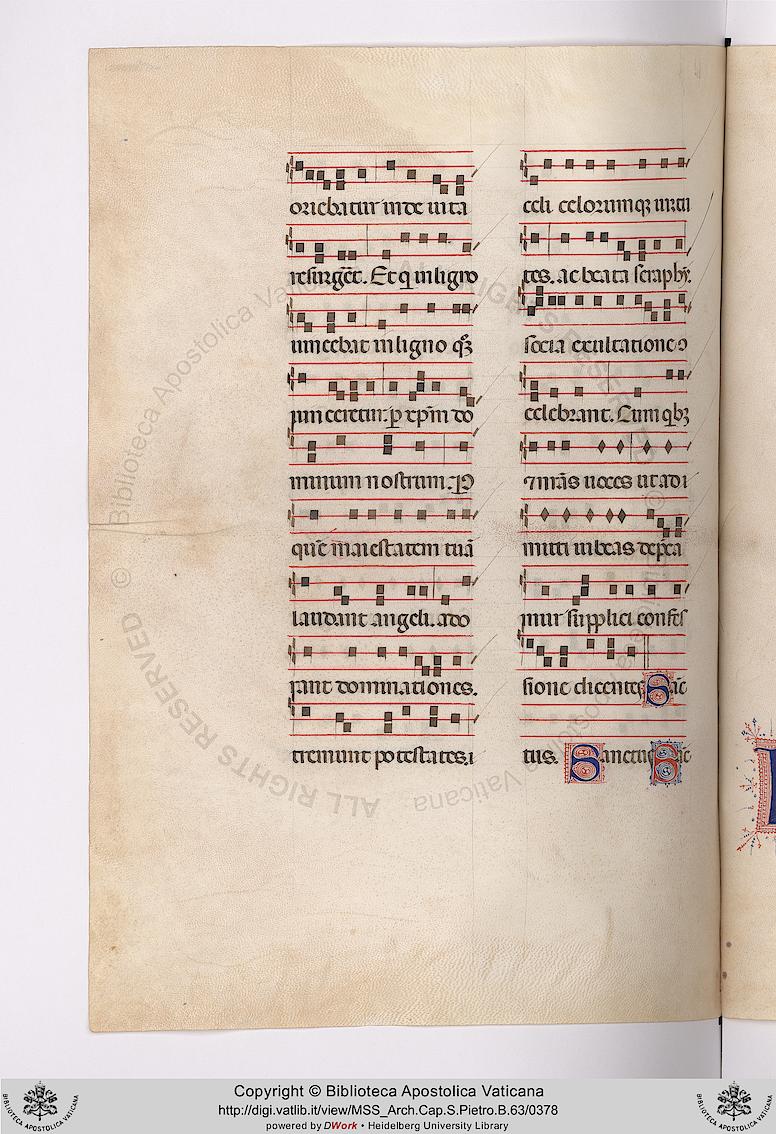 oriebatur inde uita
resurgeēt. Et q̄ in ligno
uincebat in ligno q̄ꝫ
uinceretur: p̱ xp̄m do
minum nostrum: P̱
quē maiestatem tuā
laudant angeli. ado
rant dominationes.
tremunt potestates. ı
celi celorumqꝫ uirtu
tes. ac beata seraphȳ.
socia exultatione ꝯ
celebrant. Cum qbꝫ
⁊ nr̄as uoces ut adi
mitti iubeas dep̄ca
mur supplici confes
sione dicentes Sāc
tus. Sanctus Sāc
ALL RIGHTS RESERVED © Biblioteca Apostolica Vaticana
Copyright © Biblioteca Apostolica Vaticana
http://digi.vatlib.it/view/MSS_Arch.Cap.S.Pietro.B.63/0378
powered by DWork • Heidelberg University Library
BIBLIOTECA APOSTOLICA VATICANA
BIBLIOTECA APOSTOLICA VATICANA